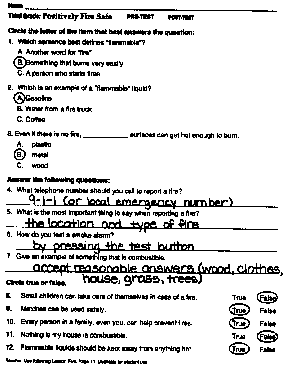 Name
Third Grade: Positively Fire Safe PRE-TEST POST-TEST
Circle the letter of the item that best answers the question:
1. Which sentence best defines "flammable"?
A. Another word for "fire"
B. Something that burns very easily
C. A person who starts fires
2. Which is an example of a "flammable" liquid?
A. Gasoline
B. Water from a fire truck
C. Coffee
3. Even if there is no fire, surfaces can get hot enough to burn.
A. plastic
B. metal
C. wood
Answer the following questions:
4. What telephone number should you call to report a fire?
9-1-1 (or local emergency number)
5. What is the most important thing to say when reporting a fire?
the location and type of fire
6. How do you test a smoke alarm?
by pressing the test button
7. Give an example of something that is combustible.
accept reasonable answers (wood, clothes,
house, grass, trees)
Circle true or false.
8. Small children can take care of themselves in case of a fire. True False
9. Matches can be used safely. True False
10. Every person in a family, even you, can help prevent fires. True False
11. Nothing in my house is combustible. True False
12. Flammable liquids should be kept away from anything hot. True False